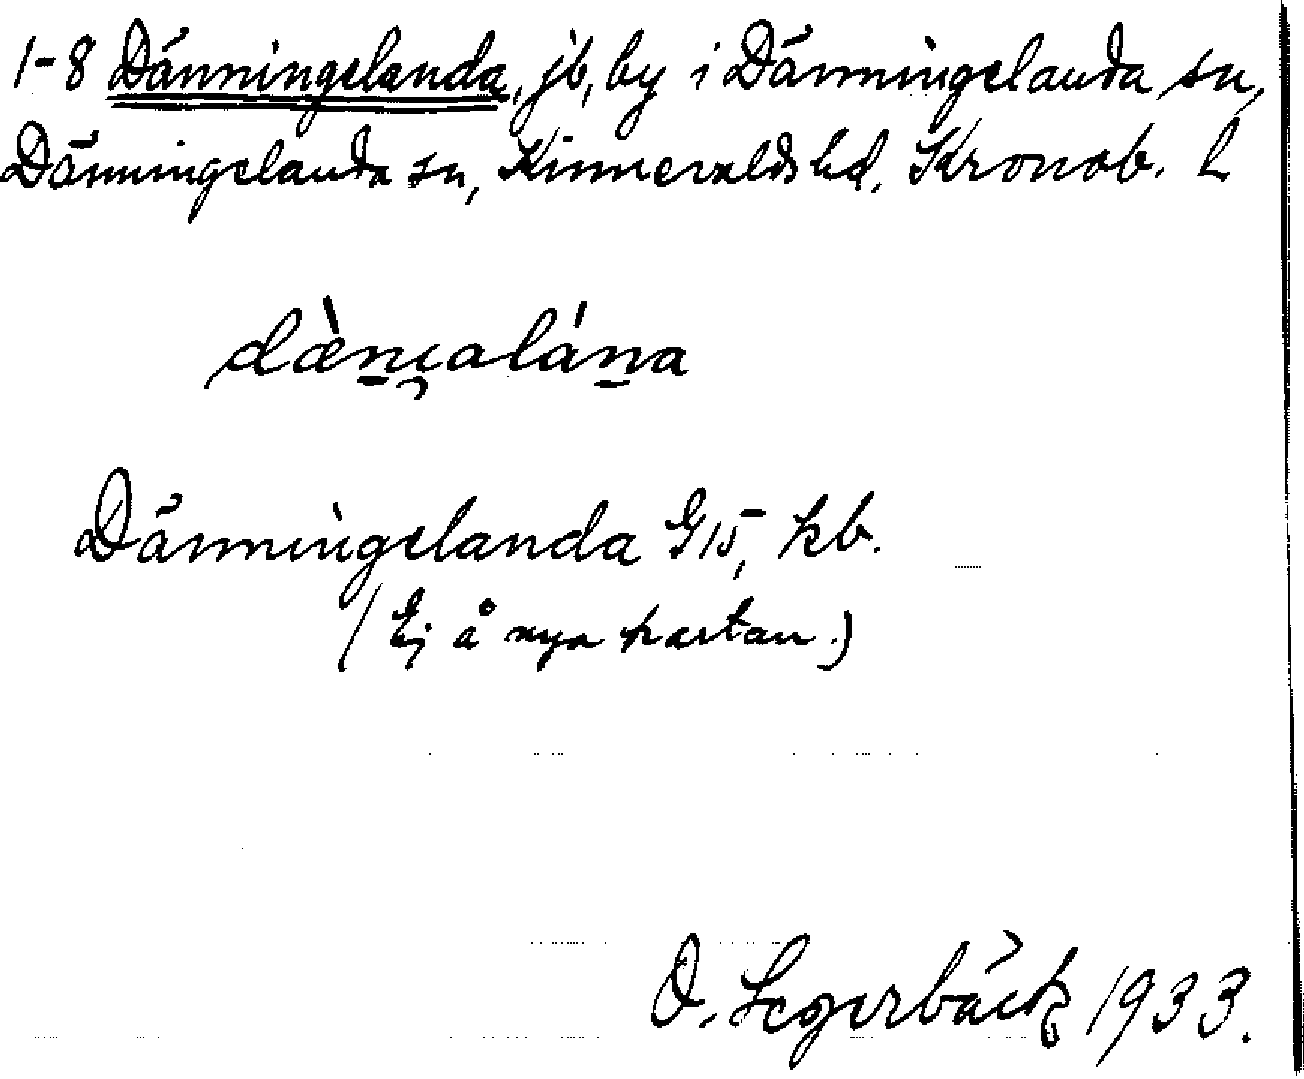 1-8 Dänningelanda, jb, by i Dänningelanda sn,
Dänningelanda sn, Kinnevalds hd. Kronob. l
Dänningelanda G15, kb.
(Ej å nya kartan.)
O. Segerbäck 1933.